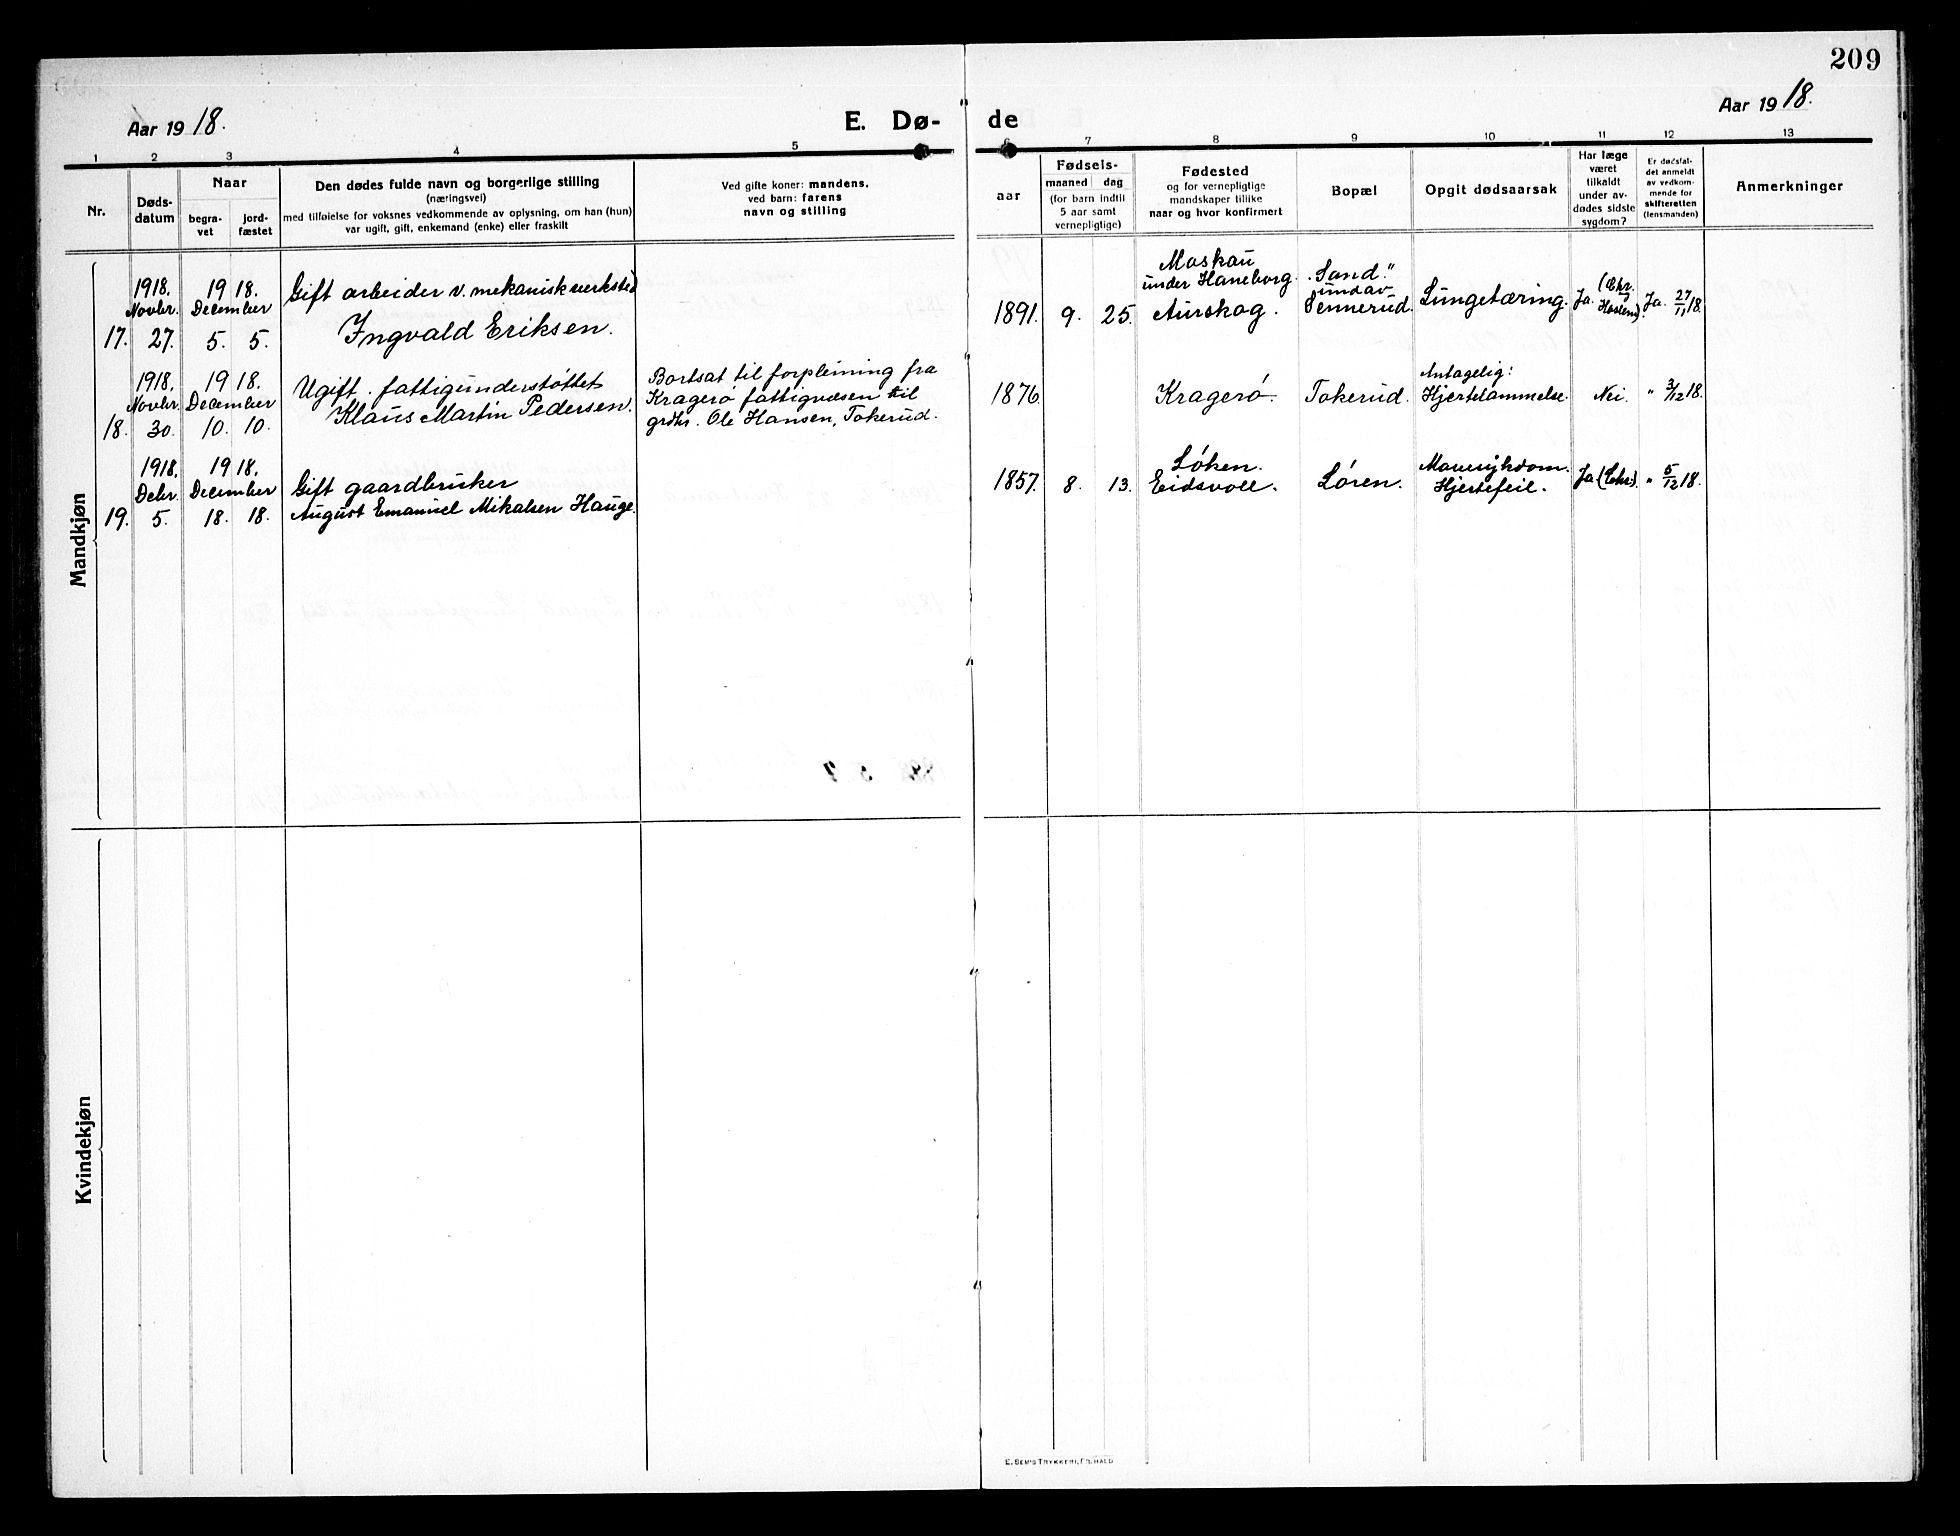 209
Aar 1918.
E. Dø-
de
Aar 1918.
1 2 3 4 5 6 7 8 9 10 11 12 13
Nr.
Døds-
datum
Naar
begra-
vet
jord-
fæstet
Den dødes fulde navn og borgerlige stilling
(næringsvei)
med tilføielse for voksnes vedkommende av oplysning, om han (hun)
var ugift, gift, enkemand (enke) eller fraskilt
Ved gifte koner: mandens,
ved barn: farens
navn og stilling
aar
Fødsels-
maaned dag
(for barn indtil
5 aar samt
vernepligtige)
Fødested
og for vernepligtige
mandskaper tillike
naar og hvor konfirmert
Bopæl
Opgit dødsaarsak
Har læge
været
tilkaldt
under av-
dødes sidste
sygdom?
Er dødsfal-
det anmeldt
av vedkom-
mende for
skifteretten
(lensmanden)
Anmerkninger
Mandkjøn
17.
1918.
Novbr.
27.
19 18.
December
5. 5.
Gift arbeider v. mekanisk verksted
Ingvald Eriksen.
1891. 9. 25.
Moskau
under Haneborg.
Aurskog.
"Sand"
undav
Sennerud.
Lungetæring.
Ja.
Ja. 27/11 18.
18.
1918.
Novbr.
30.
19 18.
December
10. 10.
Ugift. fattigunderstøttet
Klaus Martin Pedersen.
Bortsat til forpleining fra
Kragerø fattigvæsen til
grdbr. Ole Hansen, Tokerud.
1876.
Kragerø.
Tokerud.
Antagelig:
Hjertelammelse.
Nei.
" 3/12 18.
19.
1918.
Debr.
5.
19 18.
December
18. 18.
Gift gaardbruker
August Emanuel Mikalsen Hauge.
1857. 8. 13.
Løken.
Eidsvoll.
Løren.
Mavesykdom.
Hjertefeil.
Ja
" 5/12 18.
Kvindekjøn
E. SEM'S TRYKKERI, FR.HALD